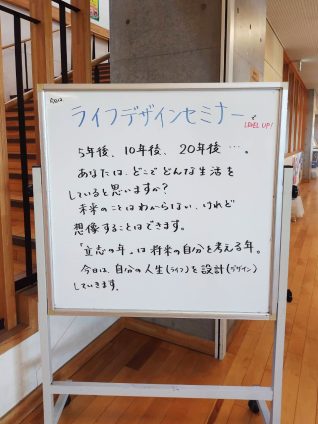 ライフデザインセミナーで
LEVEL UP!
5年後、10年後、20年後 …。
あなたは、どこでどんな生活を
していると思いますか?
未来のことはわからない、けれど
想像することはできます。
「立志の年」は将来の自分を考える年。
今日は、自分の人生(ライフ)を設計(デザイン)
していきます。